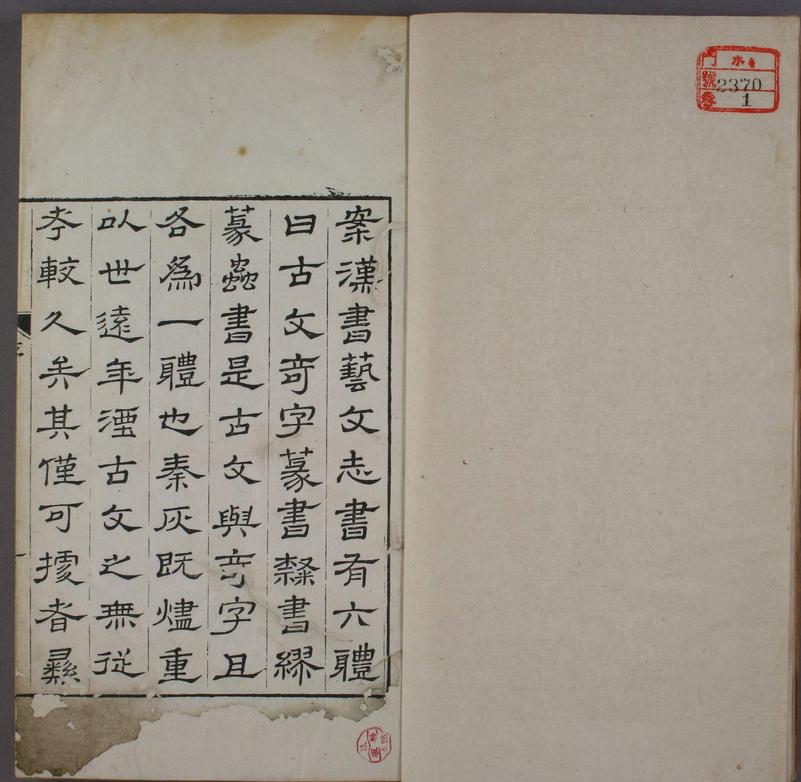 門 木
號 2370
1
案漢書藝文志書有六體
曰古文奇字篆書隸書繆
篆蟲書是古文與奇字且
各為一體也秦灰既燼重
以世遠年湮古文之無從
考較久矣其僅可據者彝